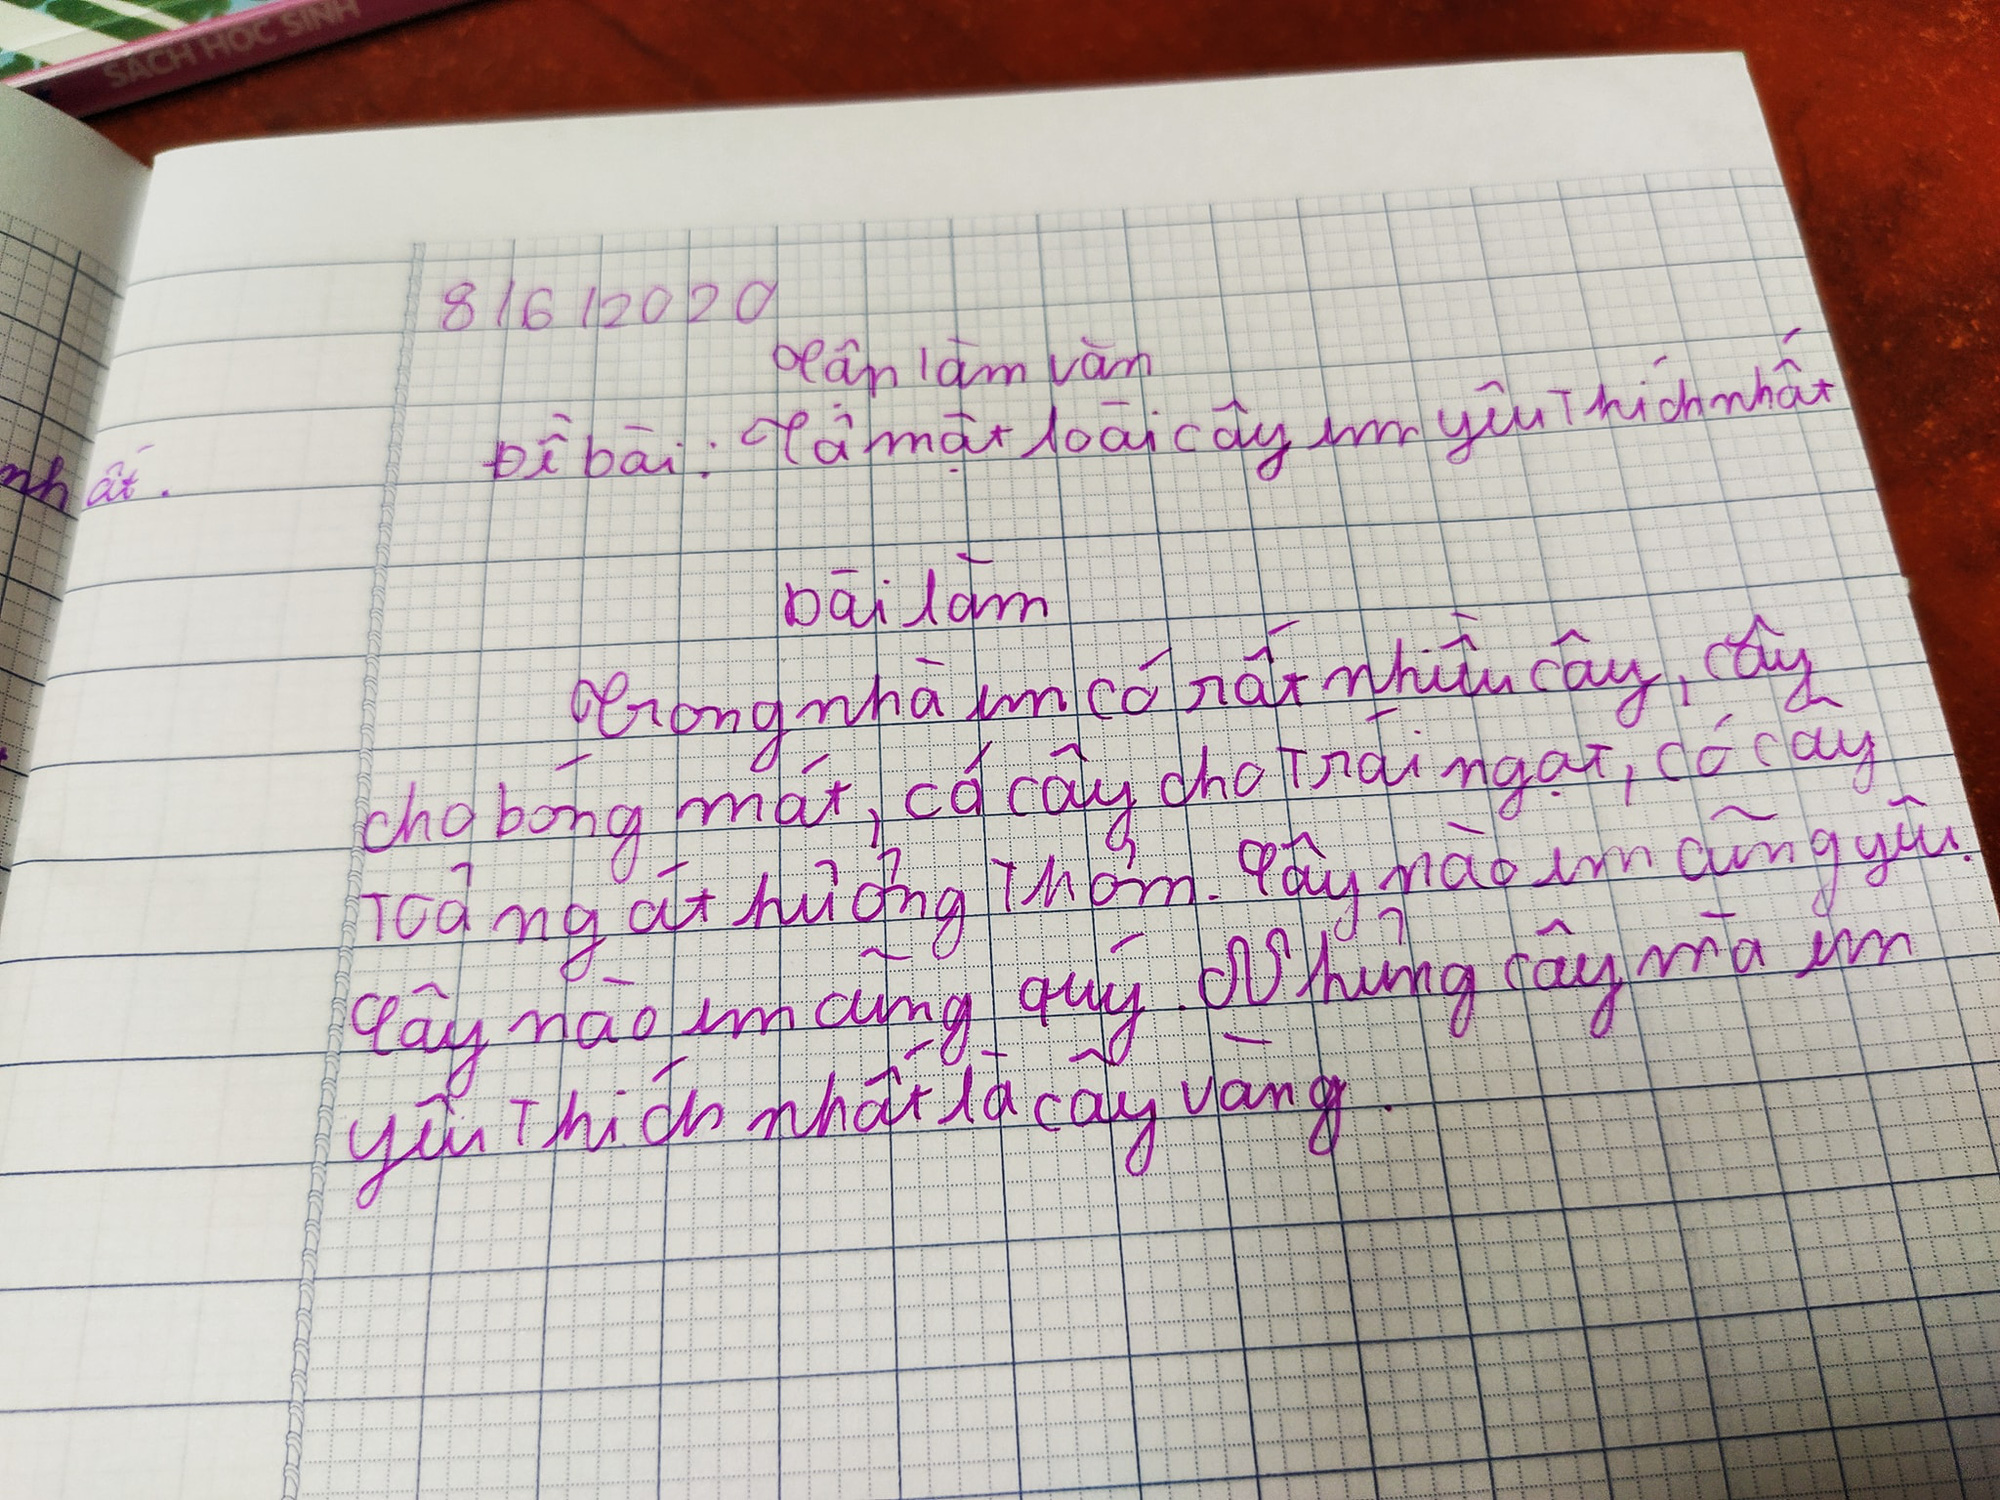 SÁCH HỌC SINH
8/6/2020
Tập làm văn
Đề bài: Tả một loài cây em yêu thích nhất
nhất.
bài làm
Trong nhà em có rất nhiều cây, cây
cho bóng mát, có cây cho trái ngạt, có cây
toả ngát hưởng thơm. Cây nào em cũng yêu.
Cây nào em cũng quý. Nhưng cây mà em
yêu thích nhất là cây vàng.